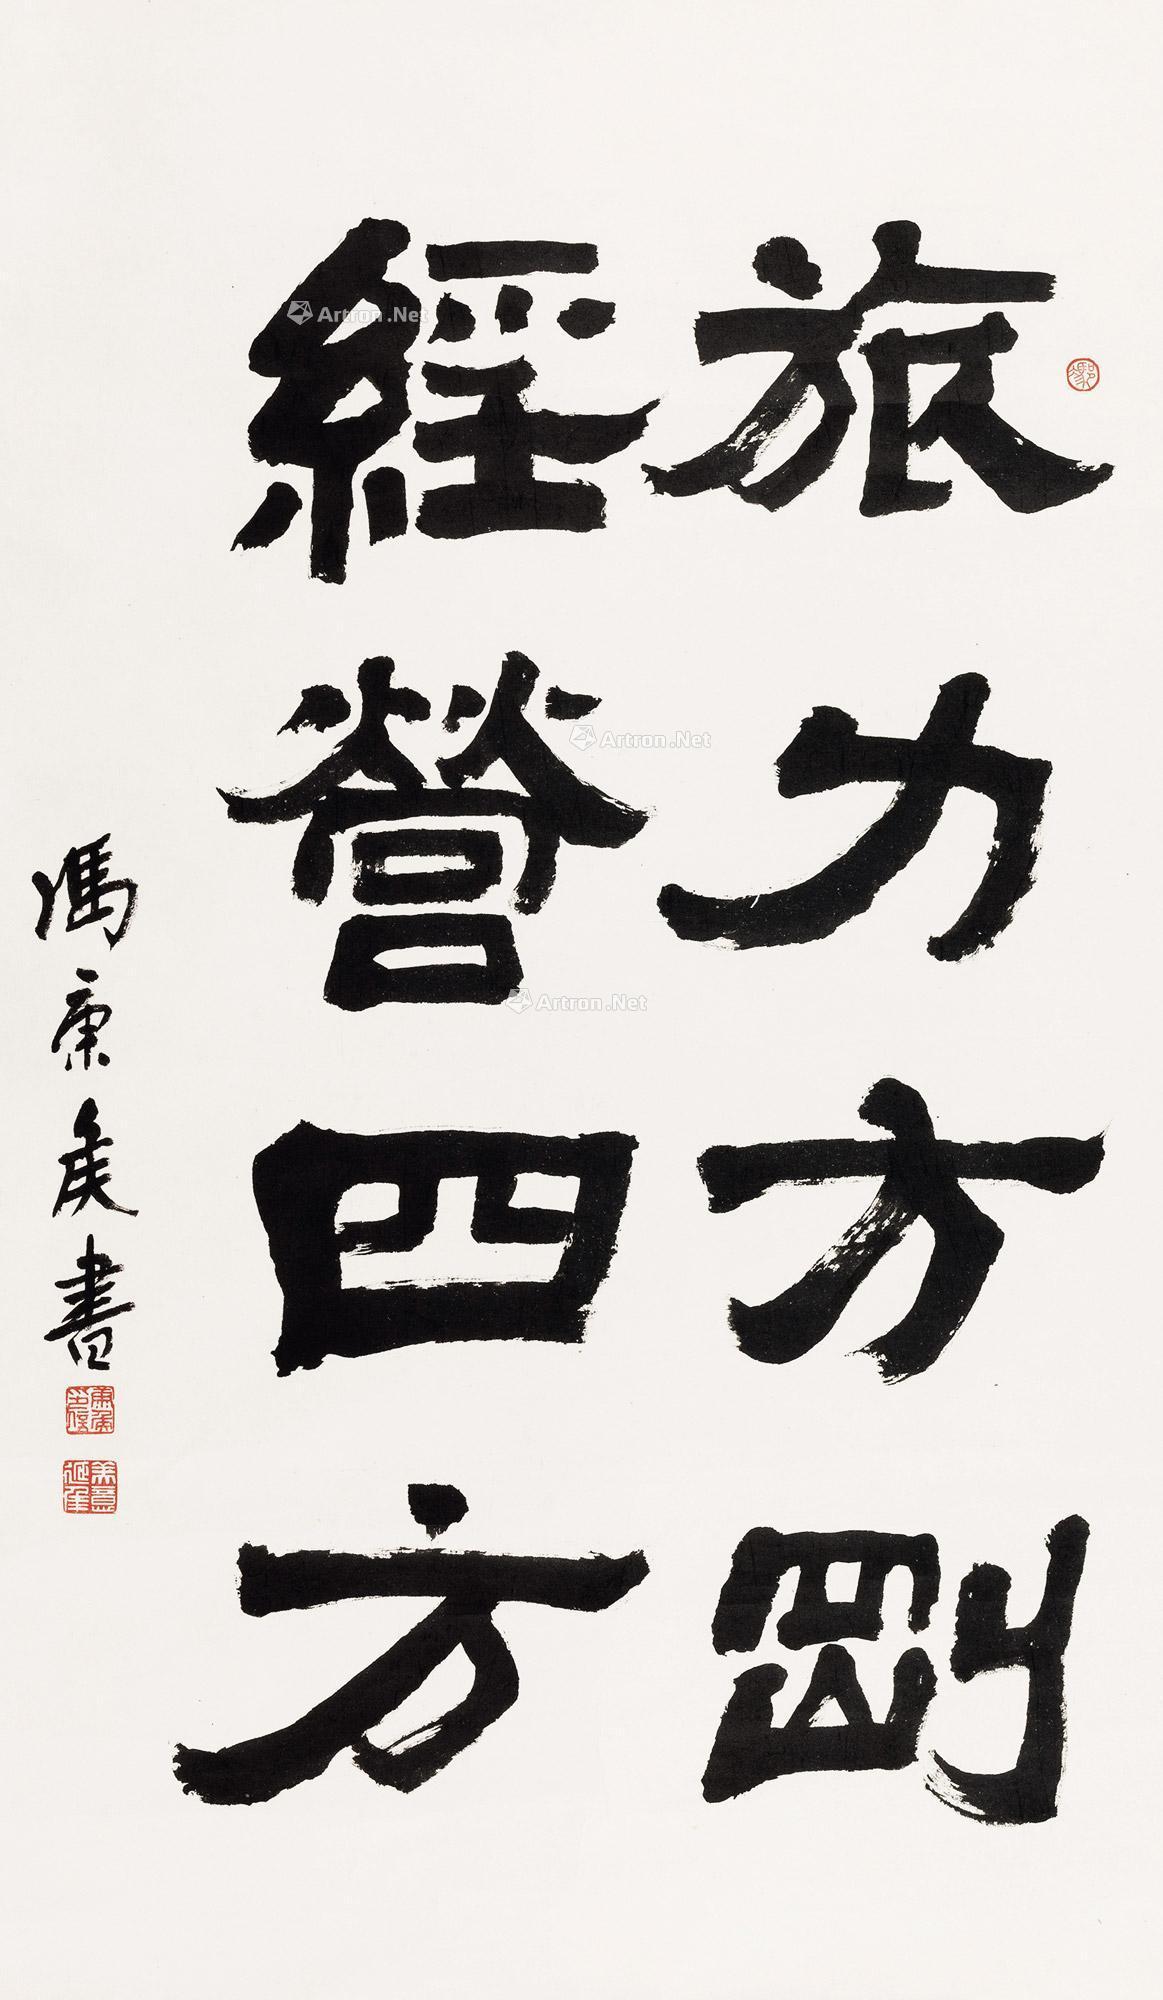 旅力方剛
經營四方
馮康矦書
Artron.Net
Artron.Net
Artron.Net